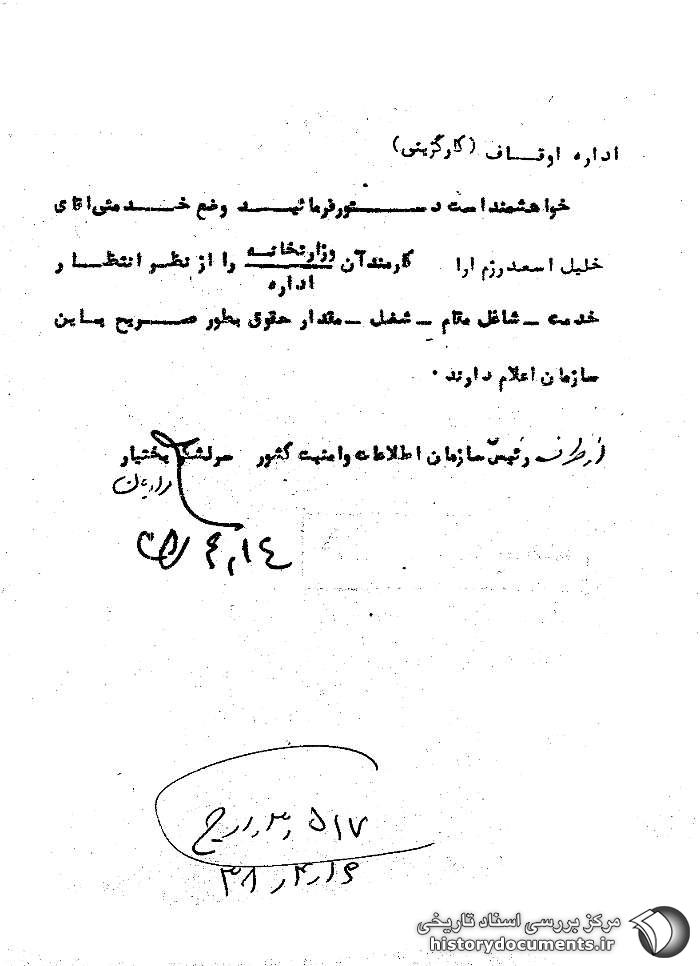 اداره اوقاف (کارگزینی)
خواهشمند است دستور فرمائید وضع خدمتی اقای
خلیل اسعد رزم ارا کارمند آن وزارتخانه را از نظر انتظار
اداره
خدمت ـ شاغل مقام ـ شغل ـ مقدار حقوق بطور صریح باین
سازمان اعلام دارند .
از طرف رئیس سازمان اطلاعات وامنیت کشور سرلشگر بختیار
۴٫۱۴
۵۱۷
۳۸٫۴٫۱۶
مرکز بررسی اسناد تاریخی
historydocuments.ir